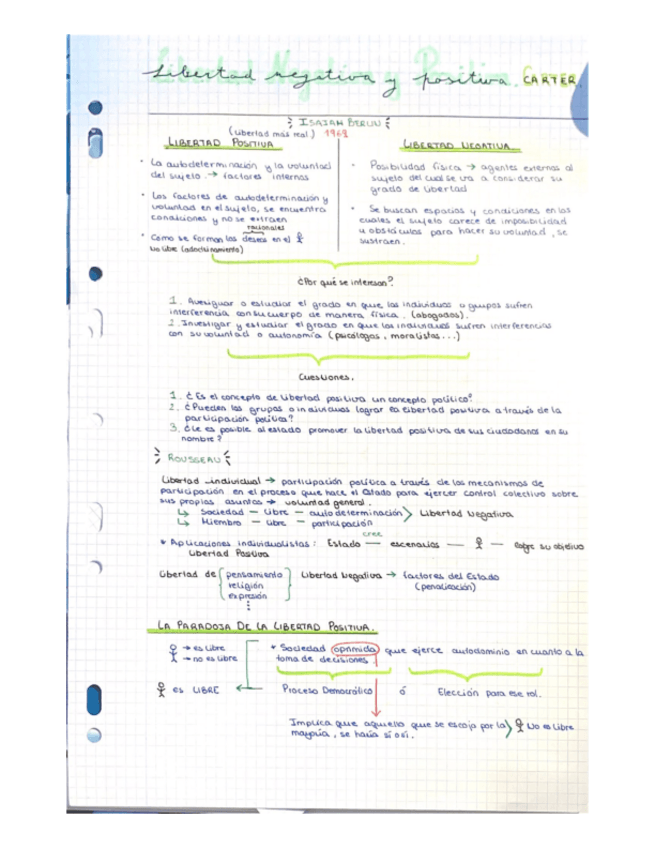 Libertad negativa y positiva. CARTER.
ISAIAH BERLIN
(libertad más real) 1969
LIBERTAD POSITIVA
· La autodeterminación y la voluntad
del sujeto. → factores internos
· Los factores de autodeterminación y
voluntad en el sujeto, se encuentra
condiciones y no se extraen
racionales
· Como se forman los deseos en el
No libre (adoctrinamiento)
LIBERTAD NEGATIVA
· Posibilidad física → agentes externos al
sujeto del cual se va a considerar su
grado de libertad
· Se buscan espacios y condiciones en las
cuales el sujeto carece de imposibilidad
u obstáculos para hacer su voluntad, se
sustraen.
¿Por qué se interesan?
1. Averiguar o estudiar el grado en que los individuos o grupos sufren
interferencia con su cuerpo de manera física. (abogados).
2. Investigar y estudiar el grado en que los individuos sufren interferencias
con su voluntad o autonomía (psicólogos, moralistas...)
Cuestiones.
1. ¿Es el concepto de libertad positiva un concepto político?
2. ¿Pueden los grupos o individuos lograr la libertad positiva a través de la
participación política?
3. ¿Le es posible al estado promover la libertad positiva de sus ciudadanos en su
nombre?
ROUSSEAU
Libertad individual → participación política a través de los mecanismos de
participación en el proceso que hace el Estado para ejercer control colectivo sobre
sus propios asuntos → voluntad general.
↳ Sociedad — libre — autodeterminación > Libertad Negativa
↳ Miembro — libre — participación
cree
* Aplicaciones individualistas: Estado — escenarios — — logre su objetivo
Libertad Positiva
Libertad de { pensamiento } Libertad Negativa → factores del Estado
religión (penalización)
expresión
LA PARADOJA DE LA LIBERTAD POSITIVA.
→ es libre
→ no es libre
* Sociedad oprimida que ejerce autodominio en cuanto a la
toma de decisiones.
es LIBRE ← Proceso Democrático ó Elección para ese rol.
Implica que aquello que se escoja por la > No es libre
mayoría, se haría sí o sí.